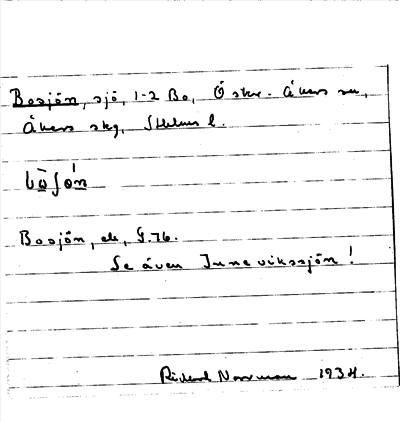 Bosjön, sjö, 1-2 Bo, Öskr. Åkers sn,
Åkers skg, Sthlms l.
Bosjön, ek, G.76.
Se även Juneviksjön!
Richard Norrman 1934.